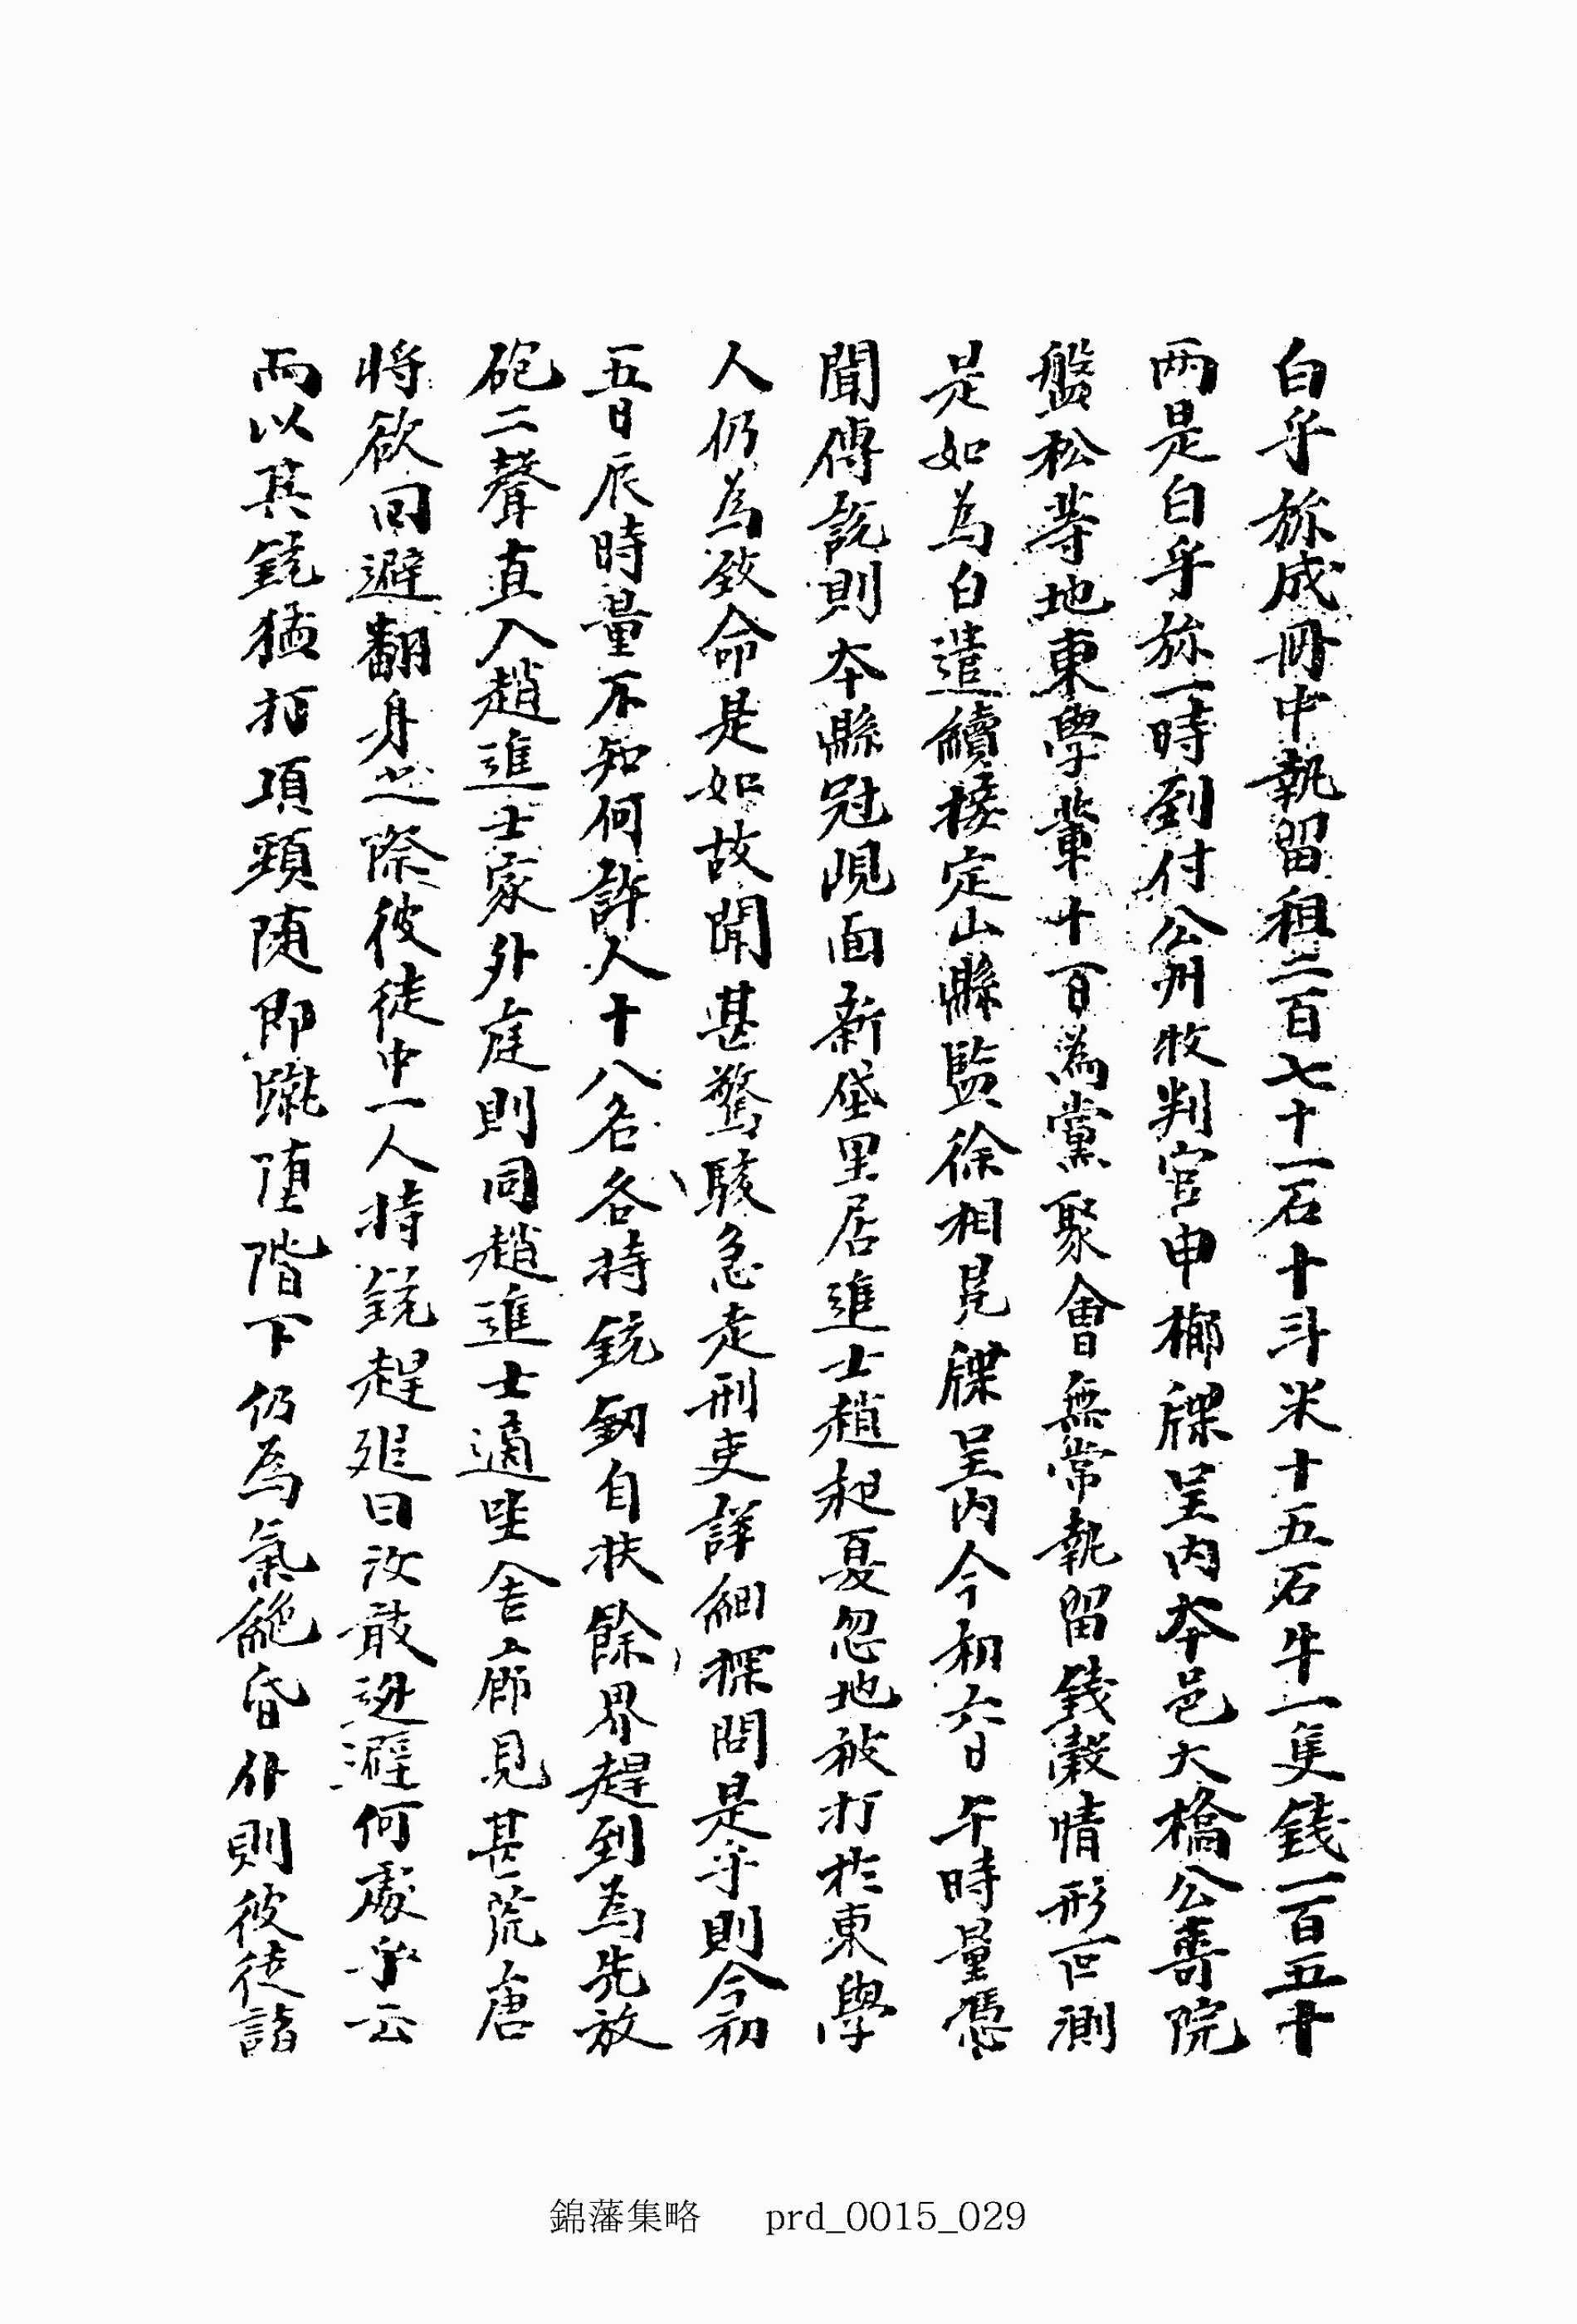 白乎旀成冊中執留租二百七十一石十斗米十五石牛一隻錢一百五十
两是白乎旀一時到付公州牧判官申㮨牒呈內本邑大橋公壽院
盤松等地東學輩十百爲黨聚會無常執留錢穀情形叵測
是如為白遣續接定山縣監徐相晃牒呈內今初六日午時量憑
聞傳說則本縣冠峴面新垈里居進士趙起夏忽地被打於東學
人仍為致命是如故聞甚驚駭急走刑吏詳細探問是乎則今初
五日辰時量不知何許人十八名各持銃釰自扶餘界趕到為先放
砲二聲直入趙進士家外庭則同趙進士適坐舍廊見甚荒唐
將欲回避翻身之際彼徒中一人持銃趕進曰汝敢逃避何處乎云
而以其銃猛打項頸随即蹴墮階下仍為氣絶昏仆則彼徒諳
錦藩集略 prd_0015_029